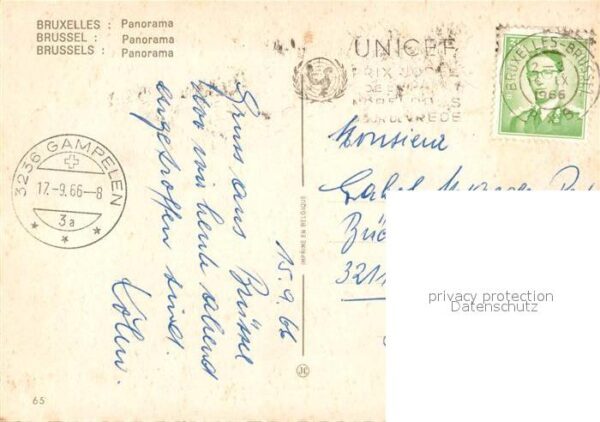 BRUXELLES : Panorama
BRUSSEL : Panorama
BRUSSELS : Panorama
UNICEF
PRIX NOBEL
DE LA PAIX
NOBELPRIJS
VOOR DE VREDE
BRUXELLES-BRUSSEL
IX
1966
3236 GAMPELEN
17.-9.66-8
3a
Gruss aus Brüssel
wo wir heute abend
eingetroffen sind.
15.9.66
IMPRIME EN BELGIQUE
Monsieur
3211
privacy protection
Datenschutz
65